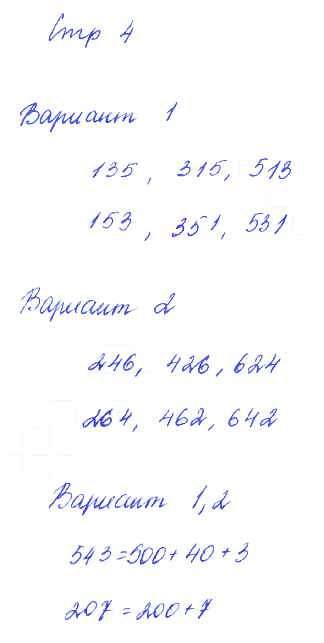 Стр 4
Вариант 1
135, 315, 513
153, 351, 531
Вариант 2
246, 426, 624
264, 462, 642
Вариант 1,2
543=500+40+3
207=200+7